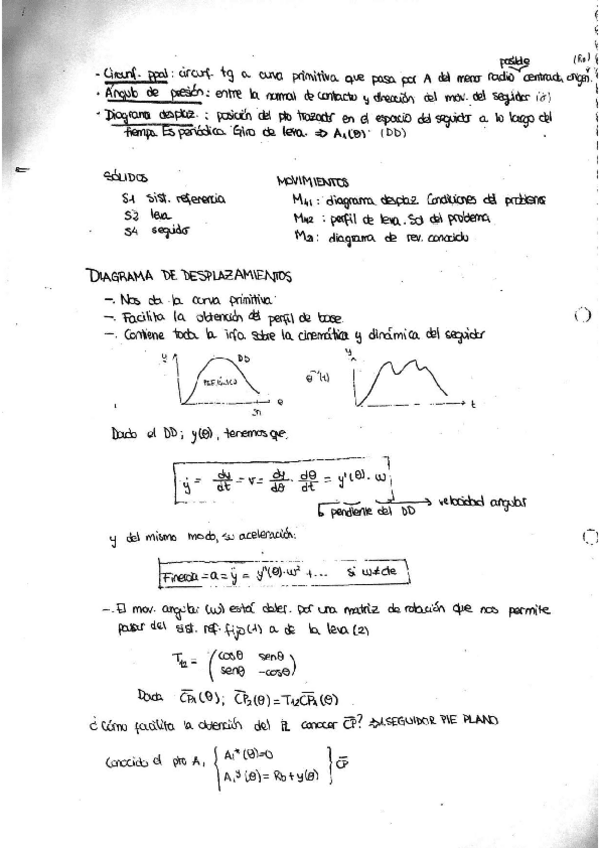 posible (R₀)
- Circunf. ppal: circunf. tg a curva primitiva que pasa por A del menor radio centrada origen.
- Ángulo de presión: entre la normal de contacto y dirección del mov. del seguidor (δ)
- Diagrama desplaz.: posición del pto trazador en el espacio del seguidor a lo largo del
tiempo. Es periódica. Giro de leva. ⇒ A₁(θ) (DD)
SÓLIDOS
S1 sist. referencia
S2 leva
S4 seguidor
MOVIMIENTOS
M41: diagrama desplaz. Condiciones del problema
M42: perfil de leva. Sol del problema
M21: diagrama de rev. conocido
DIAGRAMA DE DESPLAZAMIENTOS
-. Nos da la curva primitiva
-. Facilita la obtención del perfil de base.
-. Contiene toda la info sobre la cinemática y dinámica del seguidor
y DD PERIÓDICO θ 2π
θ⁻¹(t)
y t
Dado el DD; y(θ), tenemos que,
ẏ = dy/dt = v = dy/dθ · dθ/dt = y'(θ) · ω
pendiente del DD → velocidad angular
y del mismo modo, su aceleración:
Finercia = a = ÿ = y''(θ)·ω² + ... si ω≠cte
-. El mov. angular (ω) está deter. por una matriz de rotación que nos permite
pasar del sist. ref. fijo (1) a de la leva (2)
T12 = (cosθ senθ
senθ -cosθ)
Dada CP₁(θ); CP₂(θ) = T12 CP₁(θ)
¿Cómo facilita la obtención del PL conocer CP? SEGUIDOR PIE PLANO
Conocido el pto A, { A₁ˣ(θ)=0
A₁ʸ(θ) = Rb + y(θ) } CP